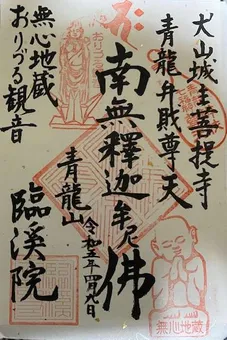 犬山城主菩提寺
青龍弁財尊天
南無釋迦牟尼佛
青龍山
令和五年四月九日
臨溪院
無心地蔵
おりづる観音
おりづる
無心地蔵